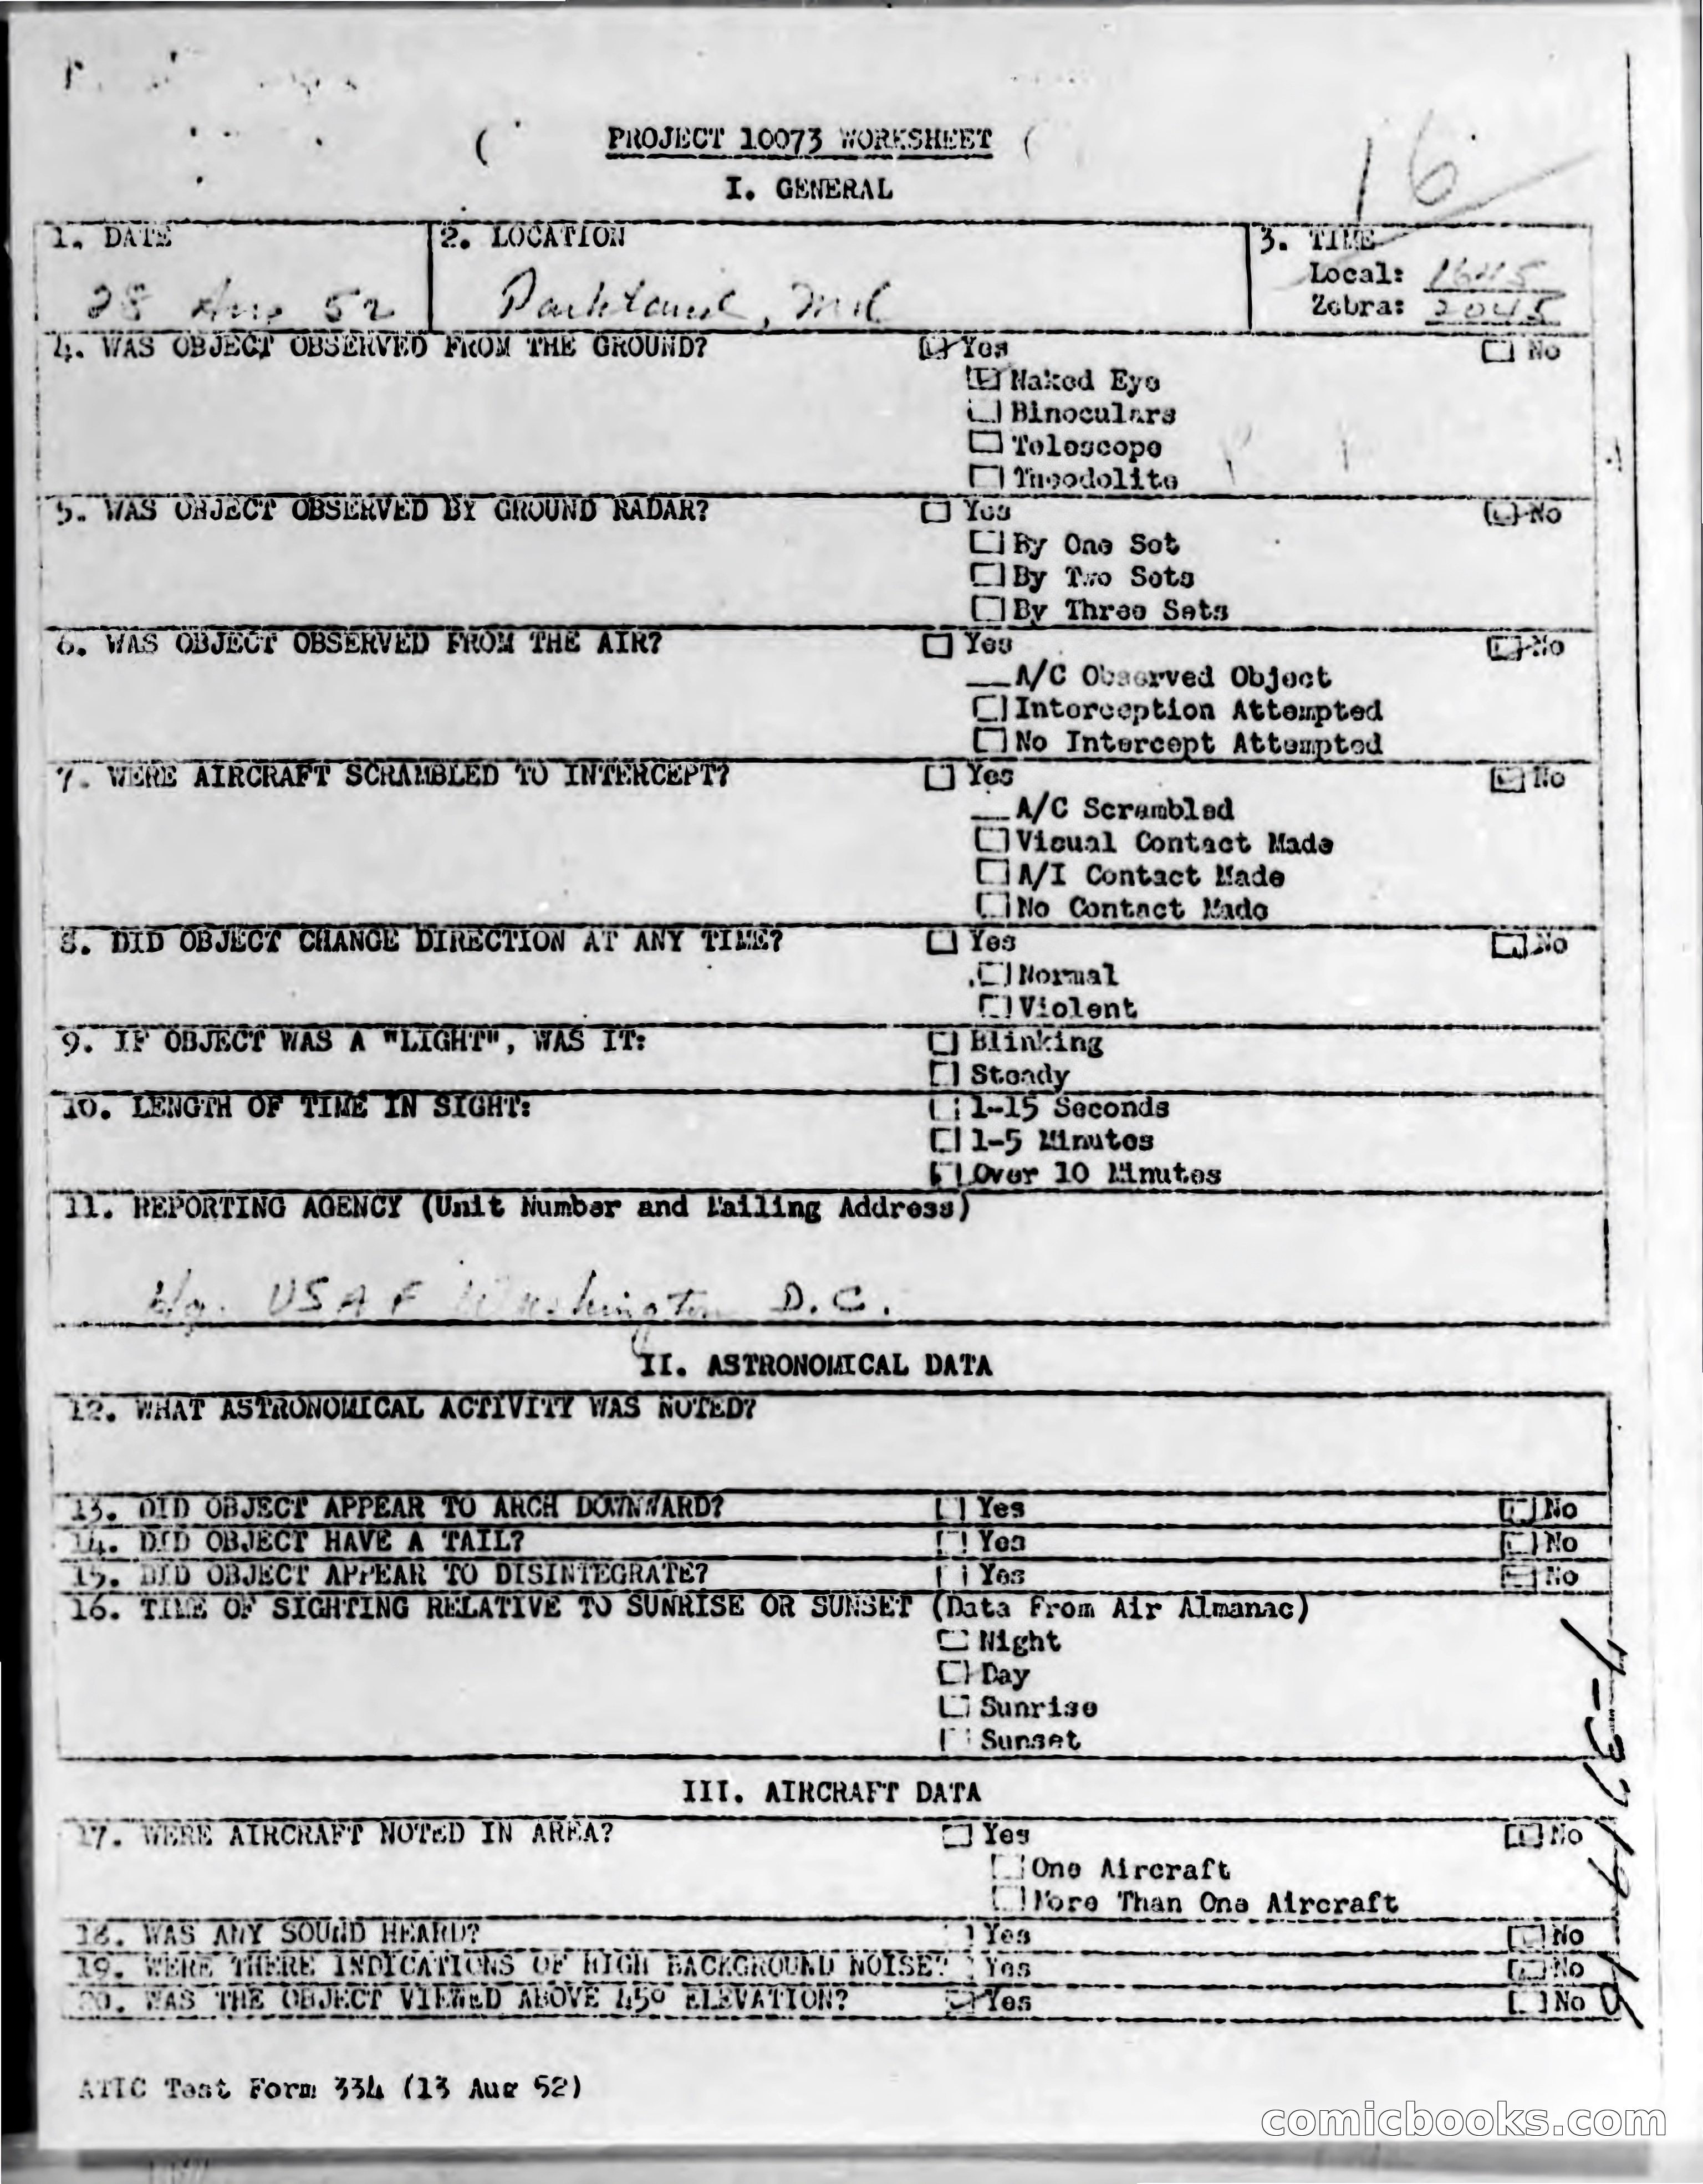 PROJECT 10073 WORKSHEET
16
I. GENERAL
1. DATE
2. LOCATION
3. TIME
Local: 1645
Zebra: 2045
28 Aug 52
Md
4. WAS OBJECT OBSERVED FROM THE GROUND?
Yes
No
Naked Eye
Binoculars
Telescope
Theodolite
5. WAS OBJECT OBSERVED BY GROUND RADAR?
Yes
No
By One Set
By Two Sets
By Three Sets
6. WAS OBJECT OBSERVED FROM THE AIR?
Yes
No
A/C Observed Object
Interception Attempted
No Intercept Attempted
7. WERE AIRCRAFT SCRAMBLED TO INTERCEPT?
Yes
No
A/C Scrambled
Visual Contact Made
A/I Contact Made
No Contact Made
8. DID OBJECT CHANGE DIRECTION AT ANY TIME?
Yes
No
Normal
Violent
9. IF OBJECT WAS A "LIGHT", WAS IT:
Blinking
Steady
10. LENGTH OF TIME IN SIGHT:
1-15 Seconds
1-5 Minutes
Over 10 Minutes
11. REPORTING AGENCY (Unit Number and Mailing Address)
Hq. USAF Washington D.C.
II. ASTRONOMICAL DATA
12. WHAT ASTRONOMICAL ACTIVITY WAS NOTED?
13. DID OBJECT APPEAR TO ARCH DOWNWARD?
Yes
No
14. DID OBJECT HAVE A TAIL?
Yes
No
15. DID OBJECT APPEAR TO DISINTEGRATE?
Yes
No
16. TIME OF SIGHTING RELATIVE TO SUNRISE OR SUNSET (Data From Air Almanac)
Night
Day
Sunrise
Sunset
III. AIRCRAFT DATA
17. WERE AIRCRAFT NOTED IN AREA?
Yes
No
One Aircraft
More Than One Aircraft
18. WAS ANY SOUND HEARD?
Yes
No
19. WERE THERE INDICATIONS OF HIGH BACKGROUND NOISE?
Yes
No
20. WAS THE OBJECT VIEWED ABOVE 45° ELEVATION?
Yes
No
ATIC Test Form 334 (13 Aug 52)
comicbooks.com